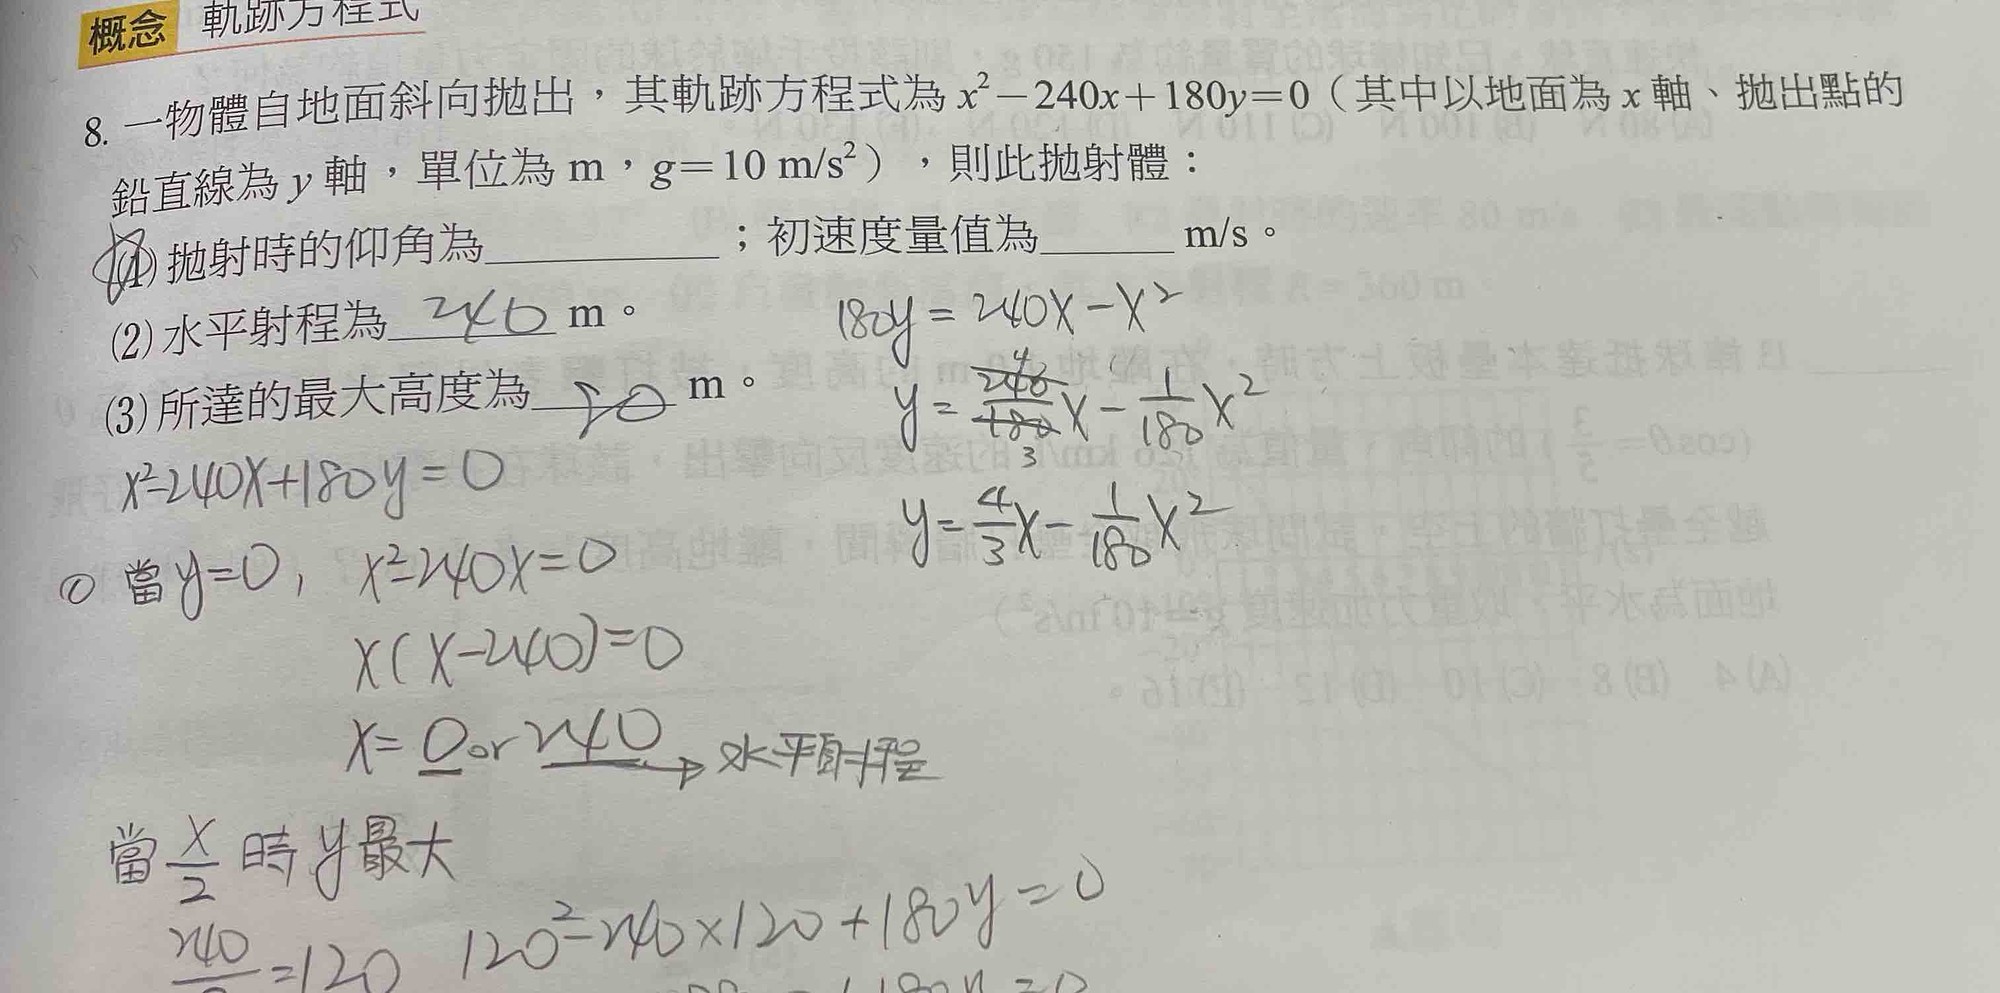 概念 軌跡方程式
8. 一物體自地面斜向拋出，其軌跡方程式為 x²－240x＋180y＝0（其中以地面為 x 軸、拋出點的
鉛直線為 y 軸，單位為 m，g＝10 m/s²），則此拋射體：
(1) 拋射時的仰角為________；初速度量值為______ m/s。
(2) 水平射程為 240 m。
(3) 所達的最大高度為 m。
180y = 240x - x²
y = 240/180 x - 1/180 x²
4
3
y = 4/3 x - 1/180 x²
x²-240x+180y=0
① 當y=0, x²-240x=0
x(x-240)=0
x= 0 or 240 → 水平射程
當 x/2 時 y最大
240/2 =120 120²-240×120+180y=0